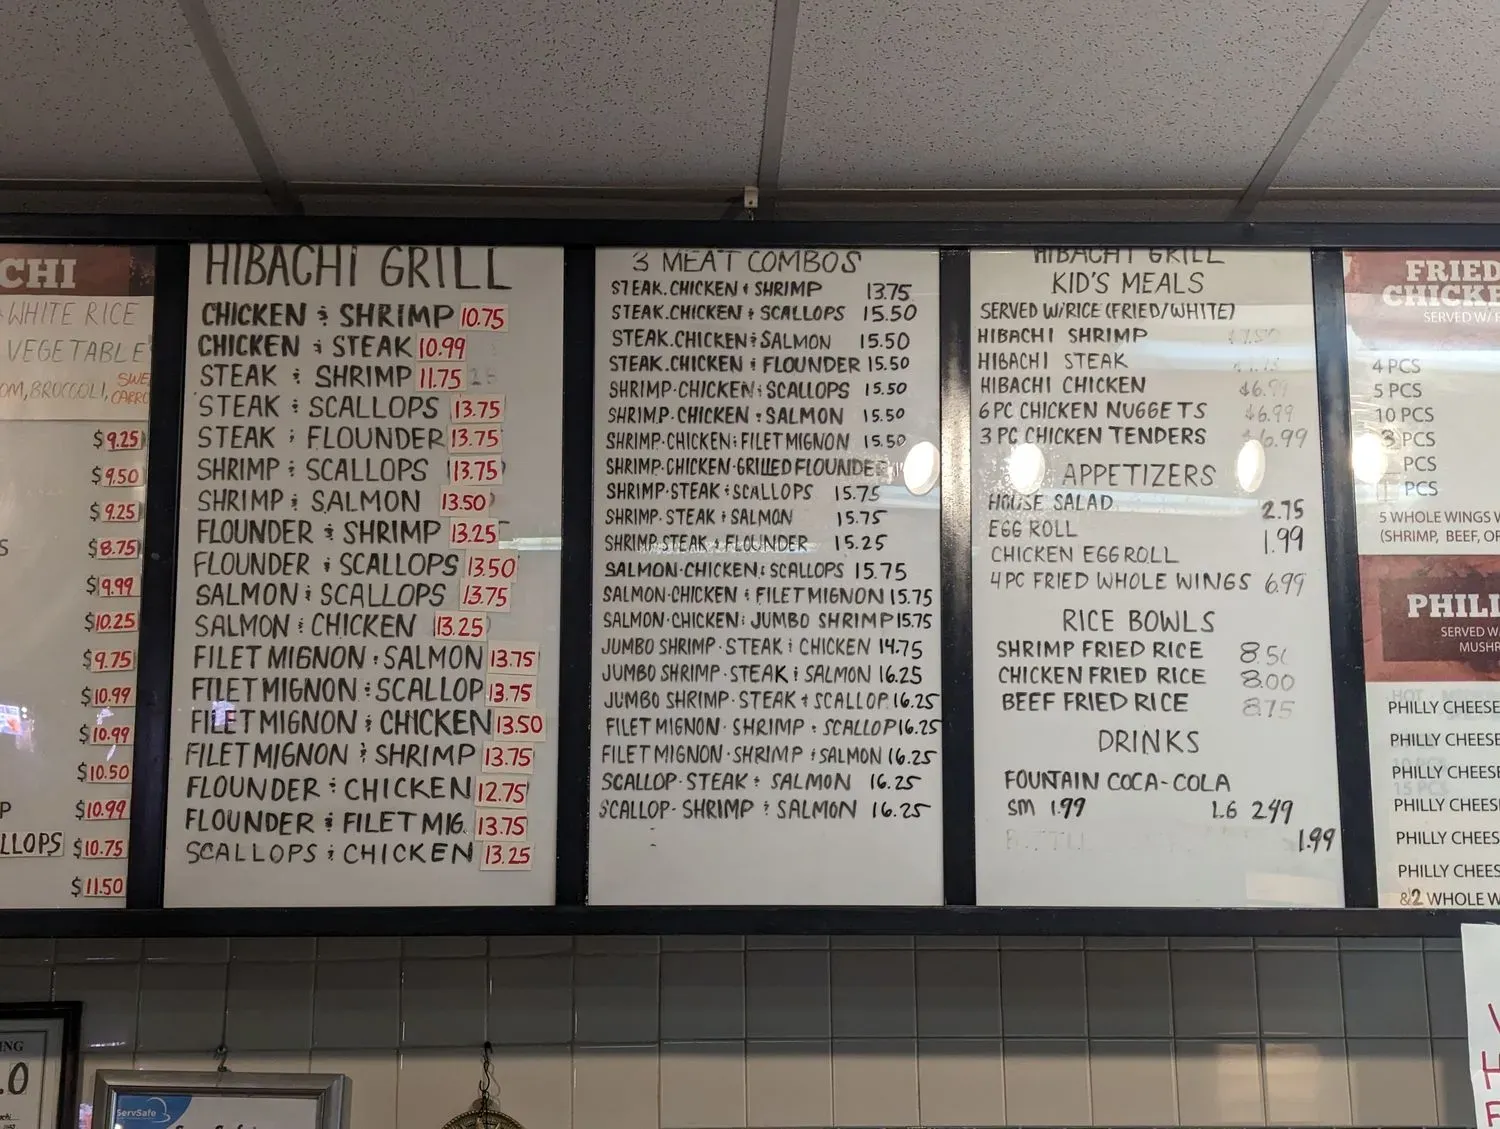 CHI
WHITE RICE
VEGETABLE
OM, BROCCOLI, SWE
CARRO
$9.25
$9.50
$9.25
S $8.75
$9.99
$10.25
$9.75
$10.99
$10.99
$10.50
P $10.99
LLOPS $10.75
$11.50
HIBACHI GRILL
CHICKEN & SHRIMP 10.75
CHICKEN & STEAK 10.99
STEAK & SHRIMP 11.75
STEAK & SCALLOPS 13.75
STEAK & FLOUNDER 13.75
SHRIMP & SCALLOPS 13.75
SHRIMP & SALMON 13.50
FLOUNDER & SHRIMP 13.25
FLOUNDER & SCALLOPS 13.50
SALMON & SCALLOPS 13.75
SALMON & CHICKEN 13.25
FILET MIGNON & SALMON 13.75
FILET MIGNON & SCALLOP 13.75
FILET MIGNON & CHICKEN 13.50
FILET MIGNON & SHRIMP 13.75
FLOUNDER & CHICKEN 12.75
FLOUNDER & FILET MIG. 13.75
SCALLOPS & CHICKEN 13.25
3 MEAT COMBOS
STEAK.CHICKEN & SHRIMP 13.75
STEAK.CHICKEN & SCALLOPS 15.50
STEAK.CHICKEN & SALMON 15.50
STEAK.CHICKEN & FLOUNDER 15.50
SHRIMP·CHICKEN & SCALLOPS 15.50
SHRIMP·CHICKEN & SALMON 15.50
SHRIMP·CHICKEN & FILET MIGNON 15.50
SHRIMP·CHICKEN·GRILLED FLOUNDER
SHRIMP·STEAK & SCALLOPS 15.75
SHRIMP·STEAK & SALMON 15.75
SHRIMP·STEAK & FLOUNDER 15.25
SALMON·CHICKEN & SCALLOPS 15.75
SALMON·CHICKEN & FILET MIGNON 15.75
SALMON·CHICKEN & JUMBO SHRIMP 15.75
JUMBO SHRIMP·STEAK & CHICKEN 14.75
JUMBO SHRIMP·STEAK & SALMON 16.25
JUMBO SHRIMP·STEAK & SCALLOP 16.25
FILET MIGNON·SHRIMP & SCALLOP 16.25
FILET MIGNON·SHRIMP & SALMON 16.25
SCALLOP·STEAK & SALMON 16.25
SCALLOP·SHRIMP & SALMON 16.25
HIBACHI GRILL
KID'S MEALS
SERVED W/RICE (FRIED/WHITE)
HIBACHI SHRIMP
HIBACHI STEAK
HIBACHI CHICKEN $6.99
6 PC CHICKEN NUGGETS $6.99
3 PC CHICKEN TENDERS $6.99
APPETIZERS
HOUSE SALAD 2.75
EGG ROLL 1.99
CHICKEN EGGROLL
4PC FRIED WHOLE WINGS 6.99
RICE BOWLS
SHRIMP FRIED RICE 8.50
CHICKEN FRIED RICE 8.00
BEEF FRIED RICE 8.75
DRINKS
FOUNTAIN COCA-COLA
SM 1.99 LG 2.49
1.99
FRIED
CHICKE
SERVED W/ F
4 PCS
5 PCS
10 PCS
3 PCS
PCS
PCS
5 WHOLE WINGS W
(SHRIMP, BEEF, OR
PHILL
SERVED W
MUSHR
PHILLY CHEESE
PHILLY CHEESE
PHILLY CHEESE
PHILLY CHEES
PHILLY CHEES
PHILLY CHEES
&2 WHOLE W
ING
.0
ServSafe